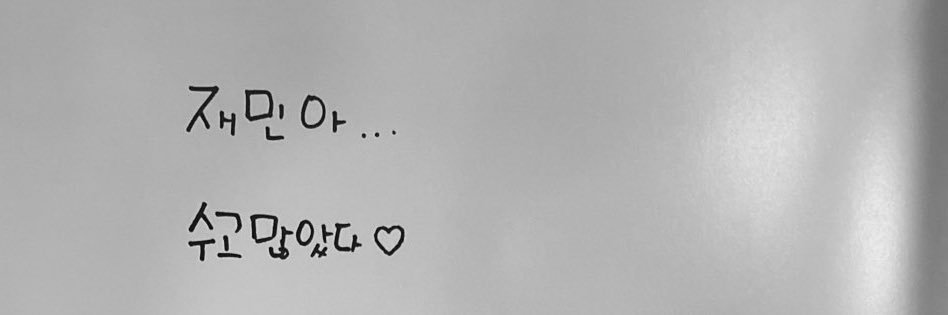 재민아...
수고많았다♡